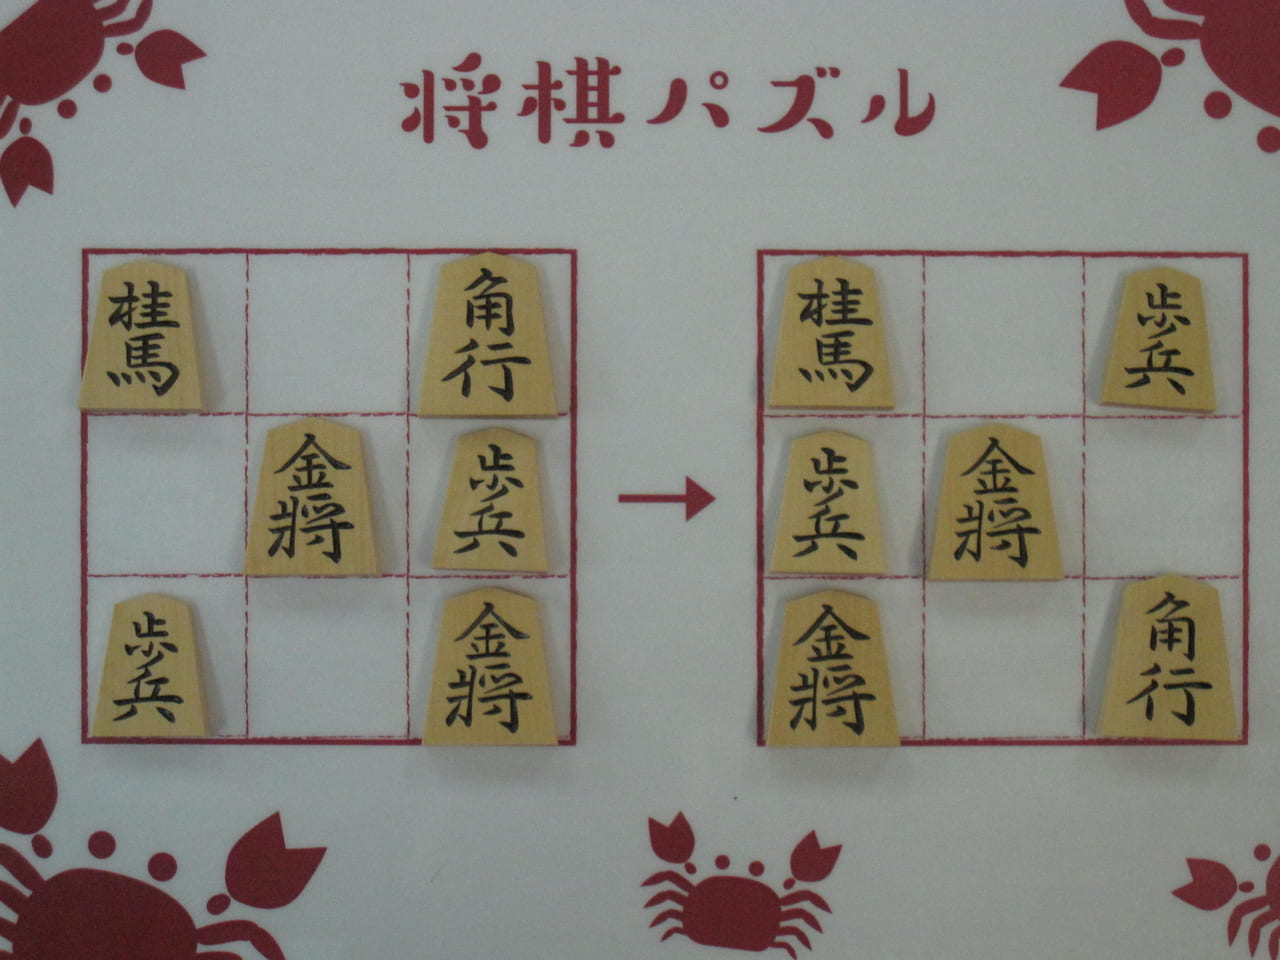 将棋パズル
桂馬 角行 桂馬 歩兵
金将 歩兵 歩兵 金将
歩兵 金将 金将 角行